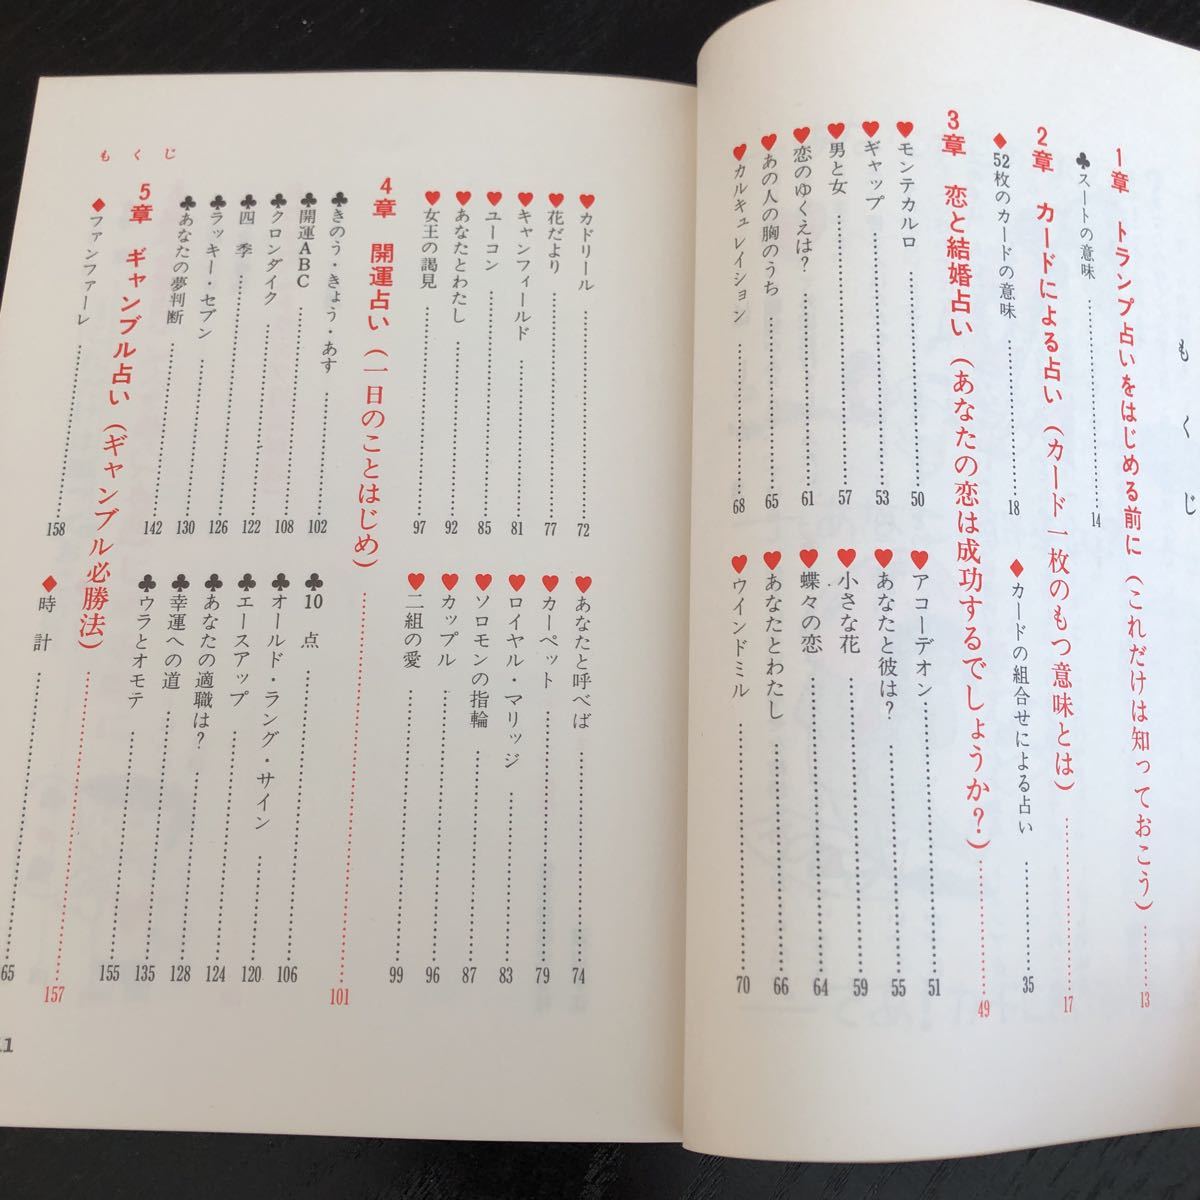 もくじ
1章 トランプ占いをはじめる前に(これだけは知っておこう)……13
♣スートの意味……14
2章 カードによる占い(カード一枚のもつ意味とは)……17
♦52枚のカードの意味……18
♦カードの組合せによる占い……35
3章 恋と結婚占い(あなたの恋は成功するでしょうか?)……49
♥モンテカルロ……50
♥アコーデオン……51
♥ギャップ……53
♥あなたと彼は?……55
♥男と女……57
♥小さな花……59
♥恋のゆくえは?……61
♥蝶々の恋……64
♥あの人の胸のうち……65
♥あなたとわたし……66
♥カルキュレイション……68
♥ウインドミル……70
♥カドリール……72
♥あなたと呼べば……74
♥花だより……77
♥カーペット……79
♥キャンフィールド……81
♥ロイヤル・マリッジ……83
♥ユーコン……85
♥ソロモンの指輪……87
♥あなたとわたし……92
♥カップル……96
♥女王の謁見……97
♥二組の愛……99
4章 開運占い(一日のことはじめ)……101
♣きのう・きょう・あす……102
♣10点……106
♣開運ABC……108
♣オールド・ラング・サイン……120
♣クロンダイク……122
♣エースアップ……124
♣四季……126
♣あなたの適職は?……128
♣ラッキー・セブン……130
♣幸運への道……135
♣あなたの夢判断……142
♣ウラとオモテ……155
5章 ギャンブル占い(ギャンブル必勝法)……157
♦ファンファーレ……158
♦時計……65
もくじ
11